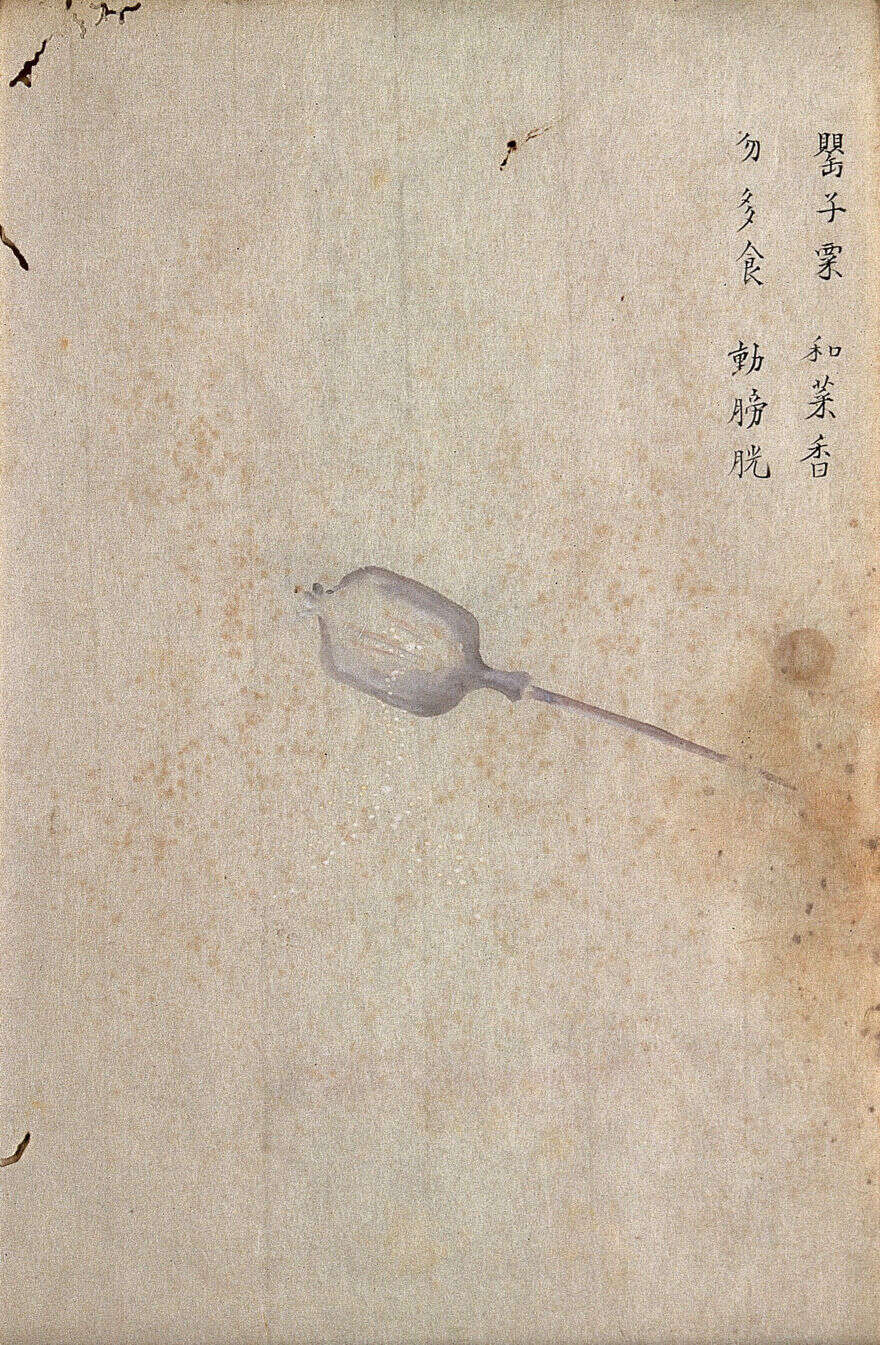 罌子粟 和菜香
勿多食 動膀胱